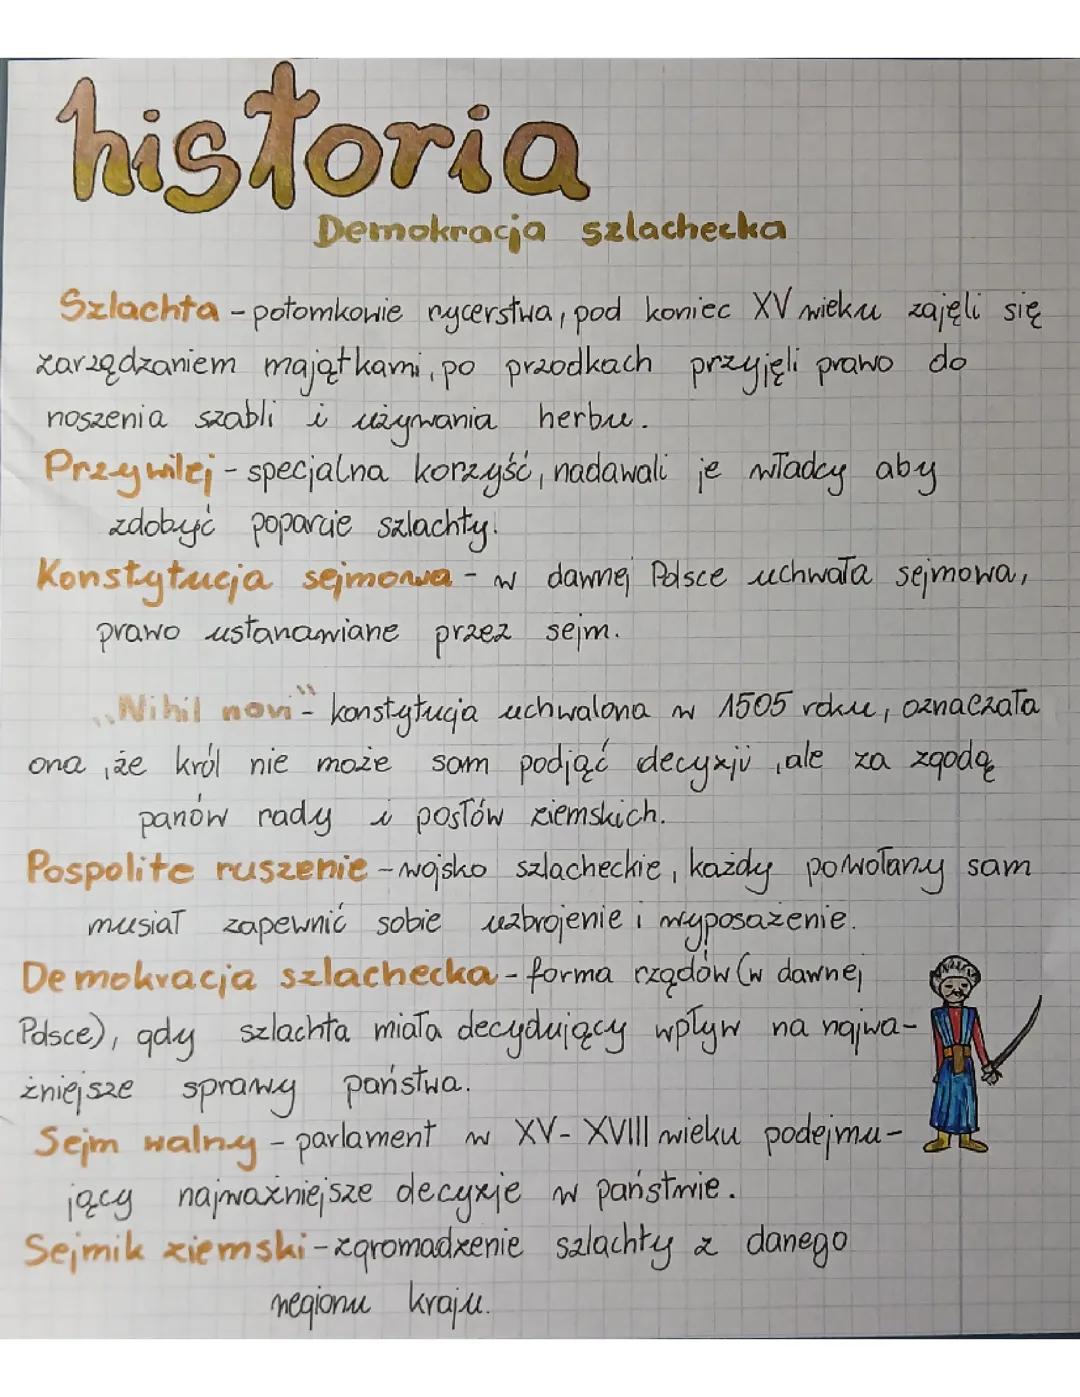 historia
Demokracja szlachecka
Szlachta - potomkowie rycerstwa, pod koniec XV wieku zajęli się
zarządzaniem majątkami, po przodkach przyjęli prawo do
noszenia szabli i używania herbu.
Przywilej - specjalna korzyść, nadawali je władcy aby
zdobyć poparcie szlachty.
Konstytucja sejmowa - w dawnej Polsce uchwała sejmowa,
prawo ustanawiane przez sejm.
„Nihil novi" - konstytucja uchwalona w 1505 roku, oznaczała
ona, że król nie może sam podjąć decyzji, ale za zgodą
panów rady i posłów ziemskich.
Pospolite ruszenie - wojsko szlacheckie, każdy powołany sam
musiał zapewnić sobie uzbrojenie i wyposażenie.
Demokracja szlachecka - forma rządów (w dawnej
Polsce), gdy szlachta miała decydujący wpływ na najwa-
żniejsze sprawy państwa.
Sejm walny - parlament w XV - XVIII wieku podejmu-
jący najważniejsze decyzje w państwie.
Sejmik ziemski - zgromadzenie szlachty z danego
regionu kraju.